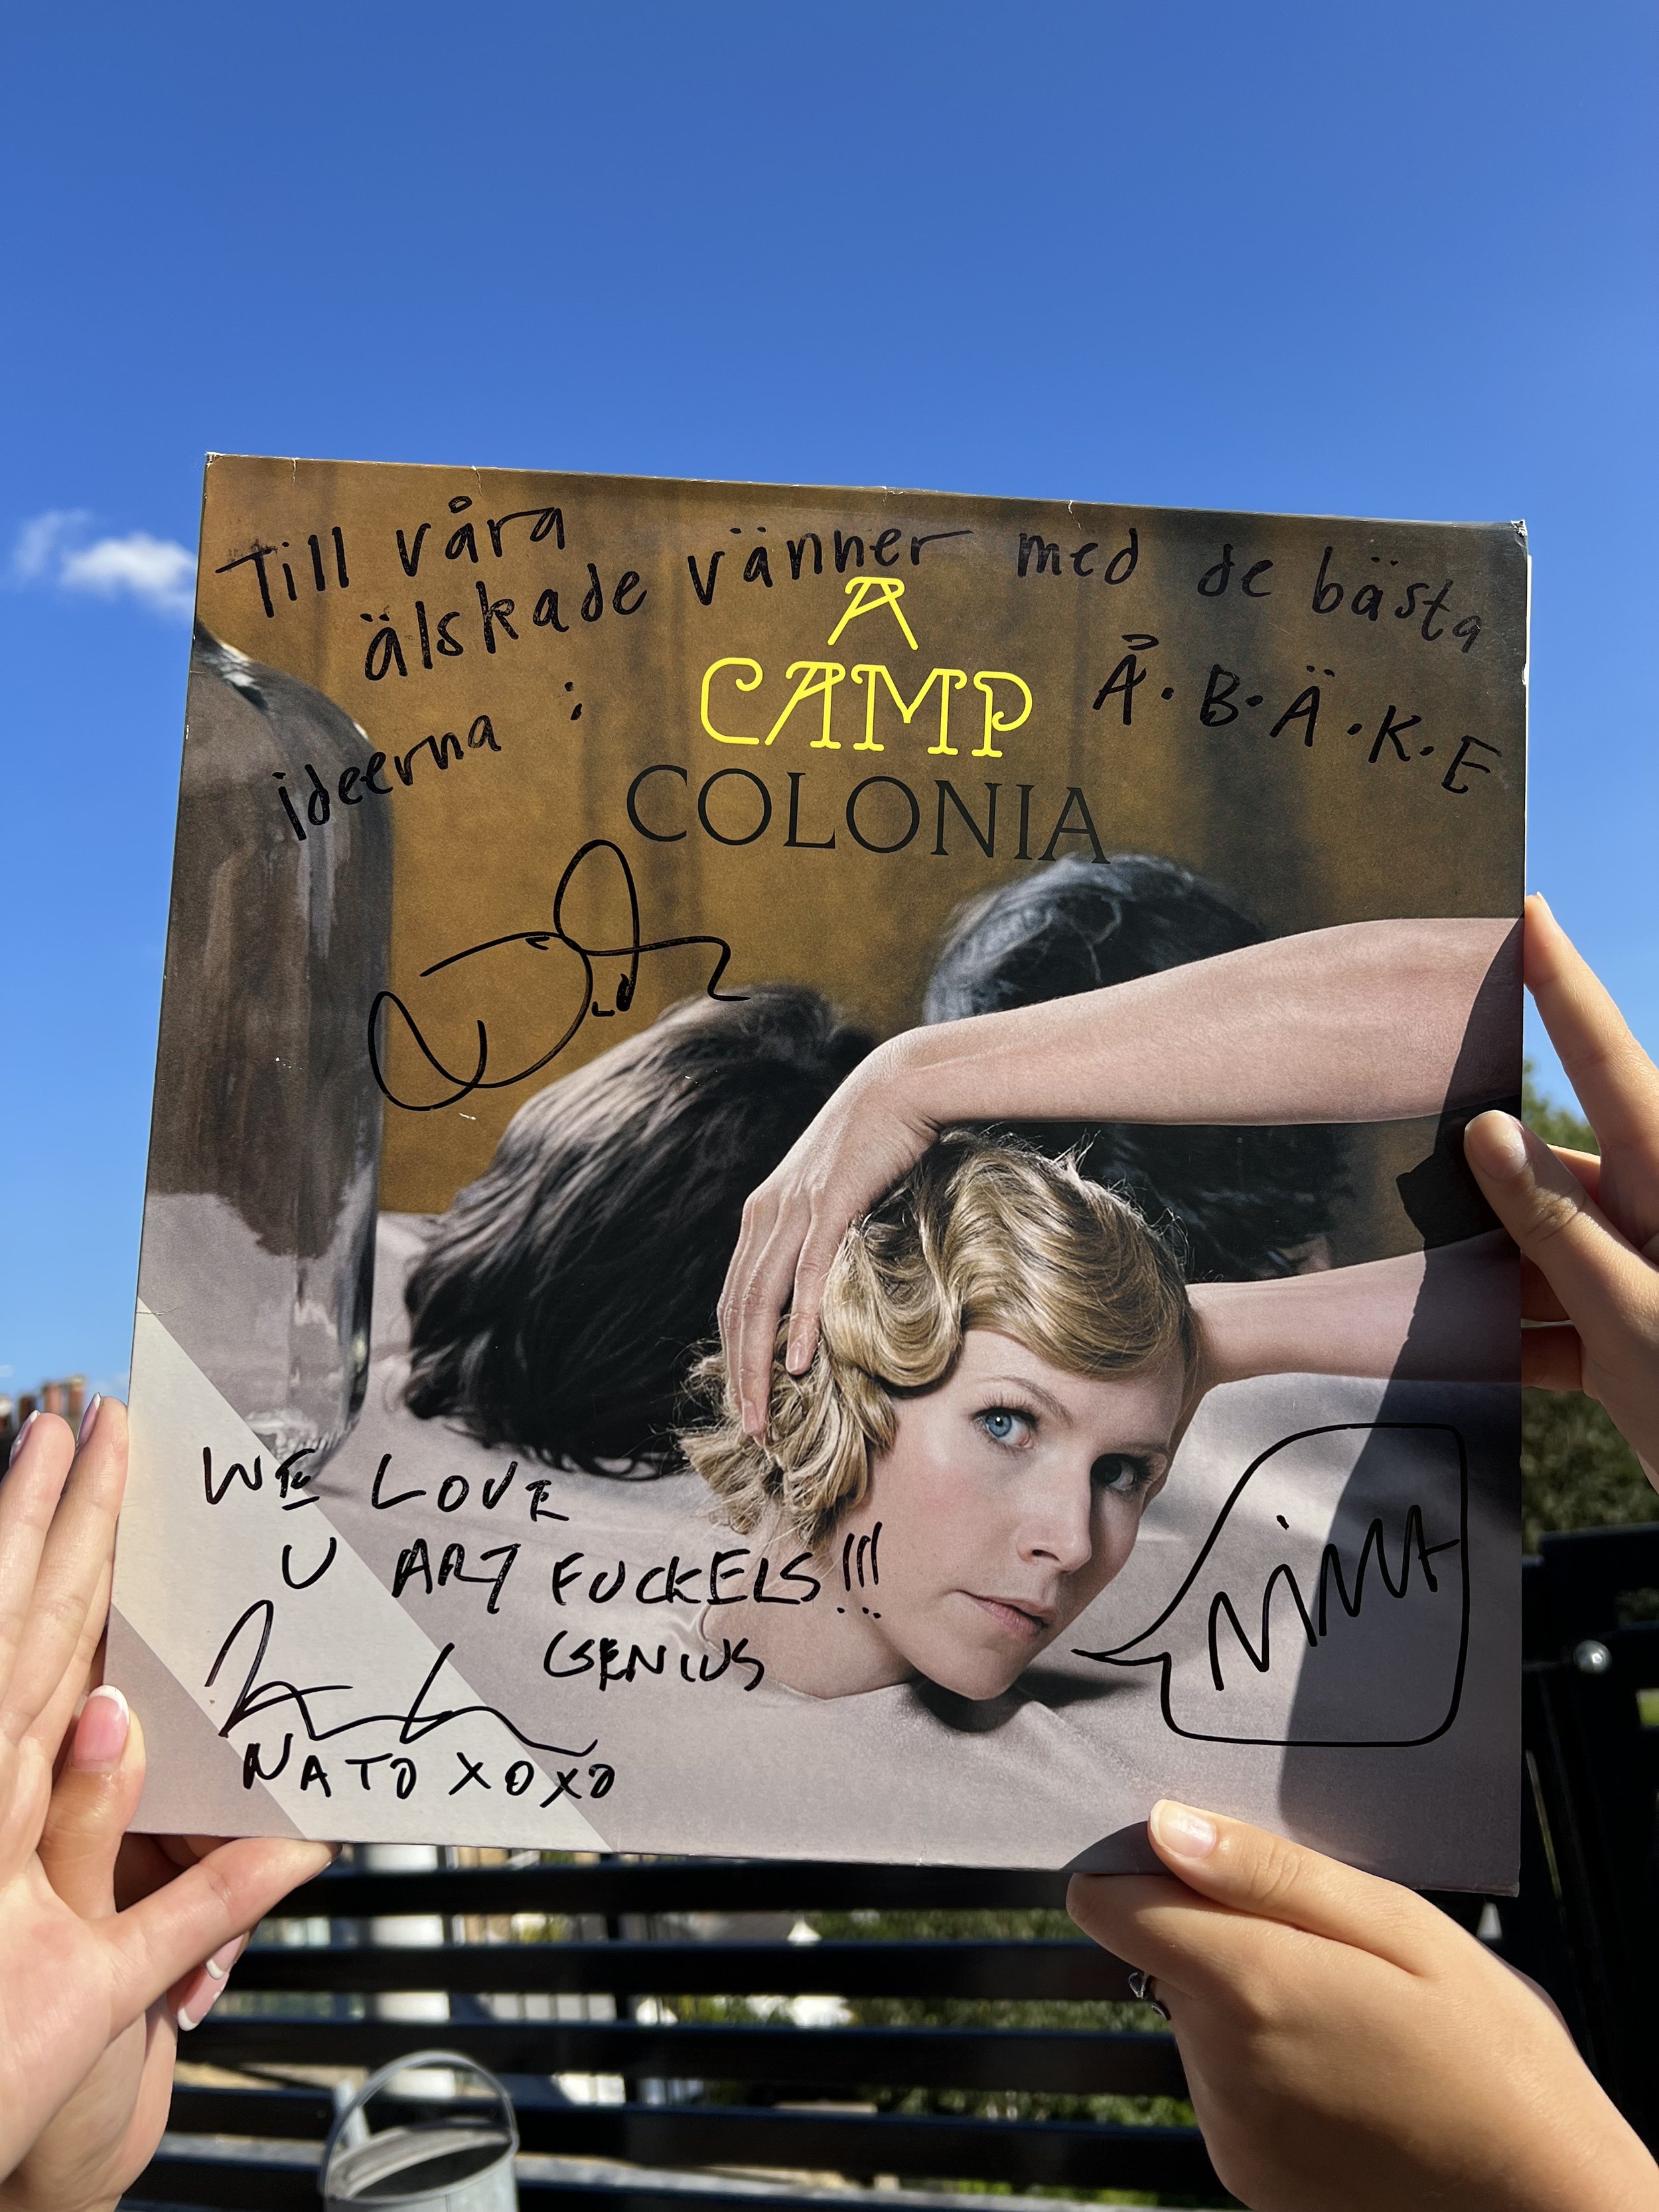 Till våra
älskade vänner med de bästa
ideerna : Å·B·Ä·K·E
A
CAMP
COLONIA
WE LOVE
U ART FUCKELS!!!
GENIUS
NATO XOXO
NiNA